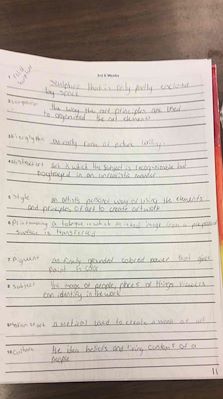 Art 6 Weeks
1 relief
sculpture that is only partly enclosed
by space
2 composition the way the art principles are used
to organized the art elements
3 hieroglyphic an early form of picture writing
4 abstract art art in which the subject is recognizable but
in an unrealistic manner
5 style an artists personal way of using the elements
and principles of art to create artwork
6 Printmaking a technique in which an inked image from a prepared
surface is transferred
7 Pigment an finely grounded colored power that gives
paint its color
8 Subject the image of people, places or things viewers
can identify in the work
9 Medium of art a material used to create a work of art
10 Culture the idea beliefs and living customs of a
people
11